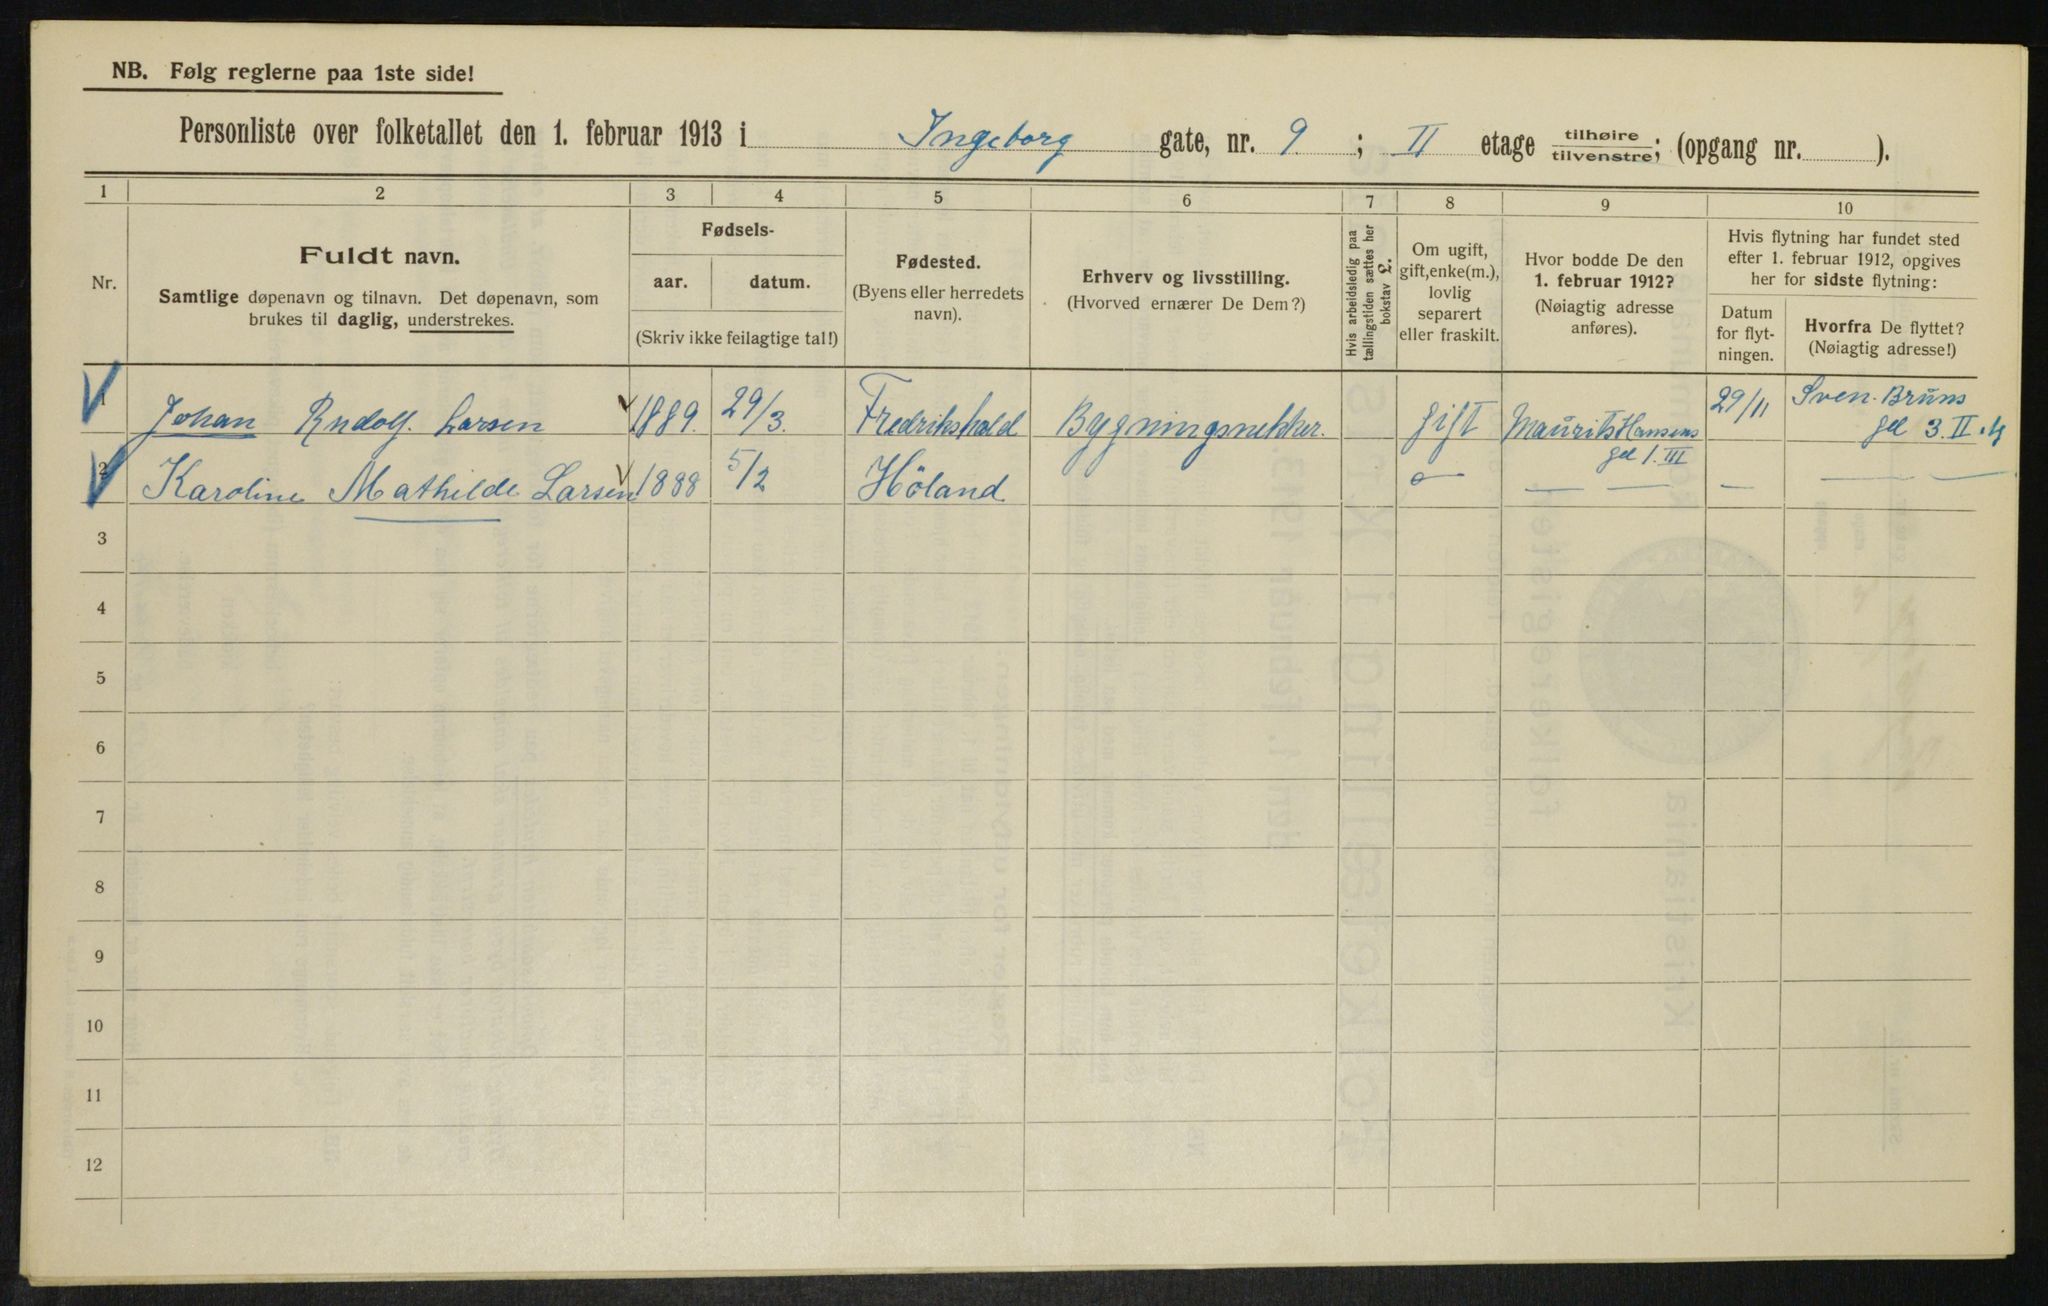 NB. Følg reglerne paa 1ste side!
Personliste over folketallet den 1. februar 1913 i Ingeborg gate, nr. 9 ; II etage tilhøire/tilvenstre; (opgang nr. ).
1 2 3 4 5 6 7 8 9 10
Nr.
Fuldt navn.
Samtlige døpenavn og tilnavn. Det døpenavn, som
brukes til daglig, understrekes.
Fødsels-
aar. datum.
(Skriv ikke feilagtige tal!)
Fødested.
(Byens eller herredets
navn).
Erhverv og livsstilling.
(Hvorved ernærer De Dem?)
Hvis arbeidsledig paa
tællingstiden sættes her
bokstav L.
Om ugift,
gift, enke(m.),
lovlig
separert
eller fraskilt.
Hvor bodde De den
1. februar 1912?
(Nøiagtig adresse
anføres).
Hvis flytning har fundet sted
efter 1. februar 1912, opgives
her for sidste flytning:
Datum
for flyt-
ningen.
Hvorfra De flyttet?
(Nøiagtig adresse!)
1 Johan Rudolf. Larsen 1889. 29/3. Fredrikshald Bygningsnekker. gift Maurits Hansens 29/11 Sven. Bruns
gd 1. III gd 3. II
2 Karoline Mathilde Larsen 1888 5/2 Höland — — — — — —
3
4
5
6
7
8
9
10
11
12